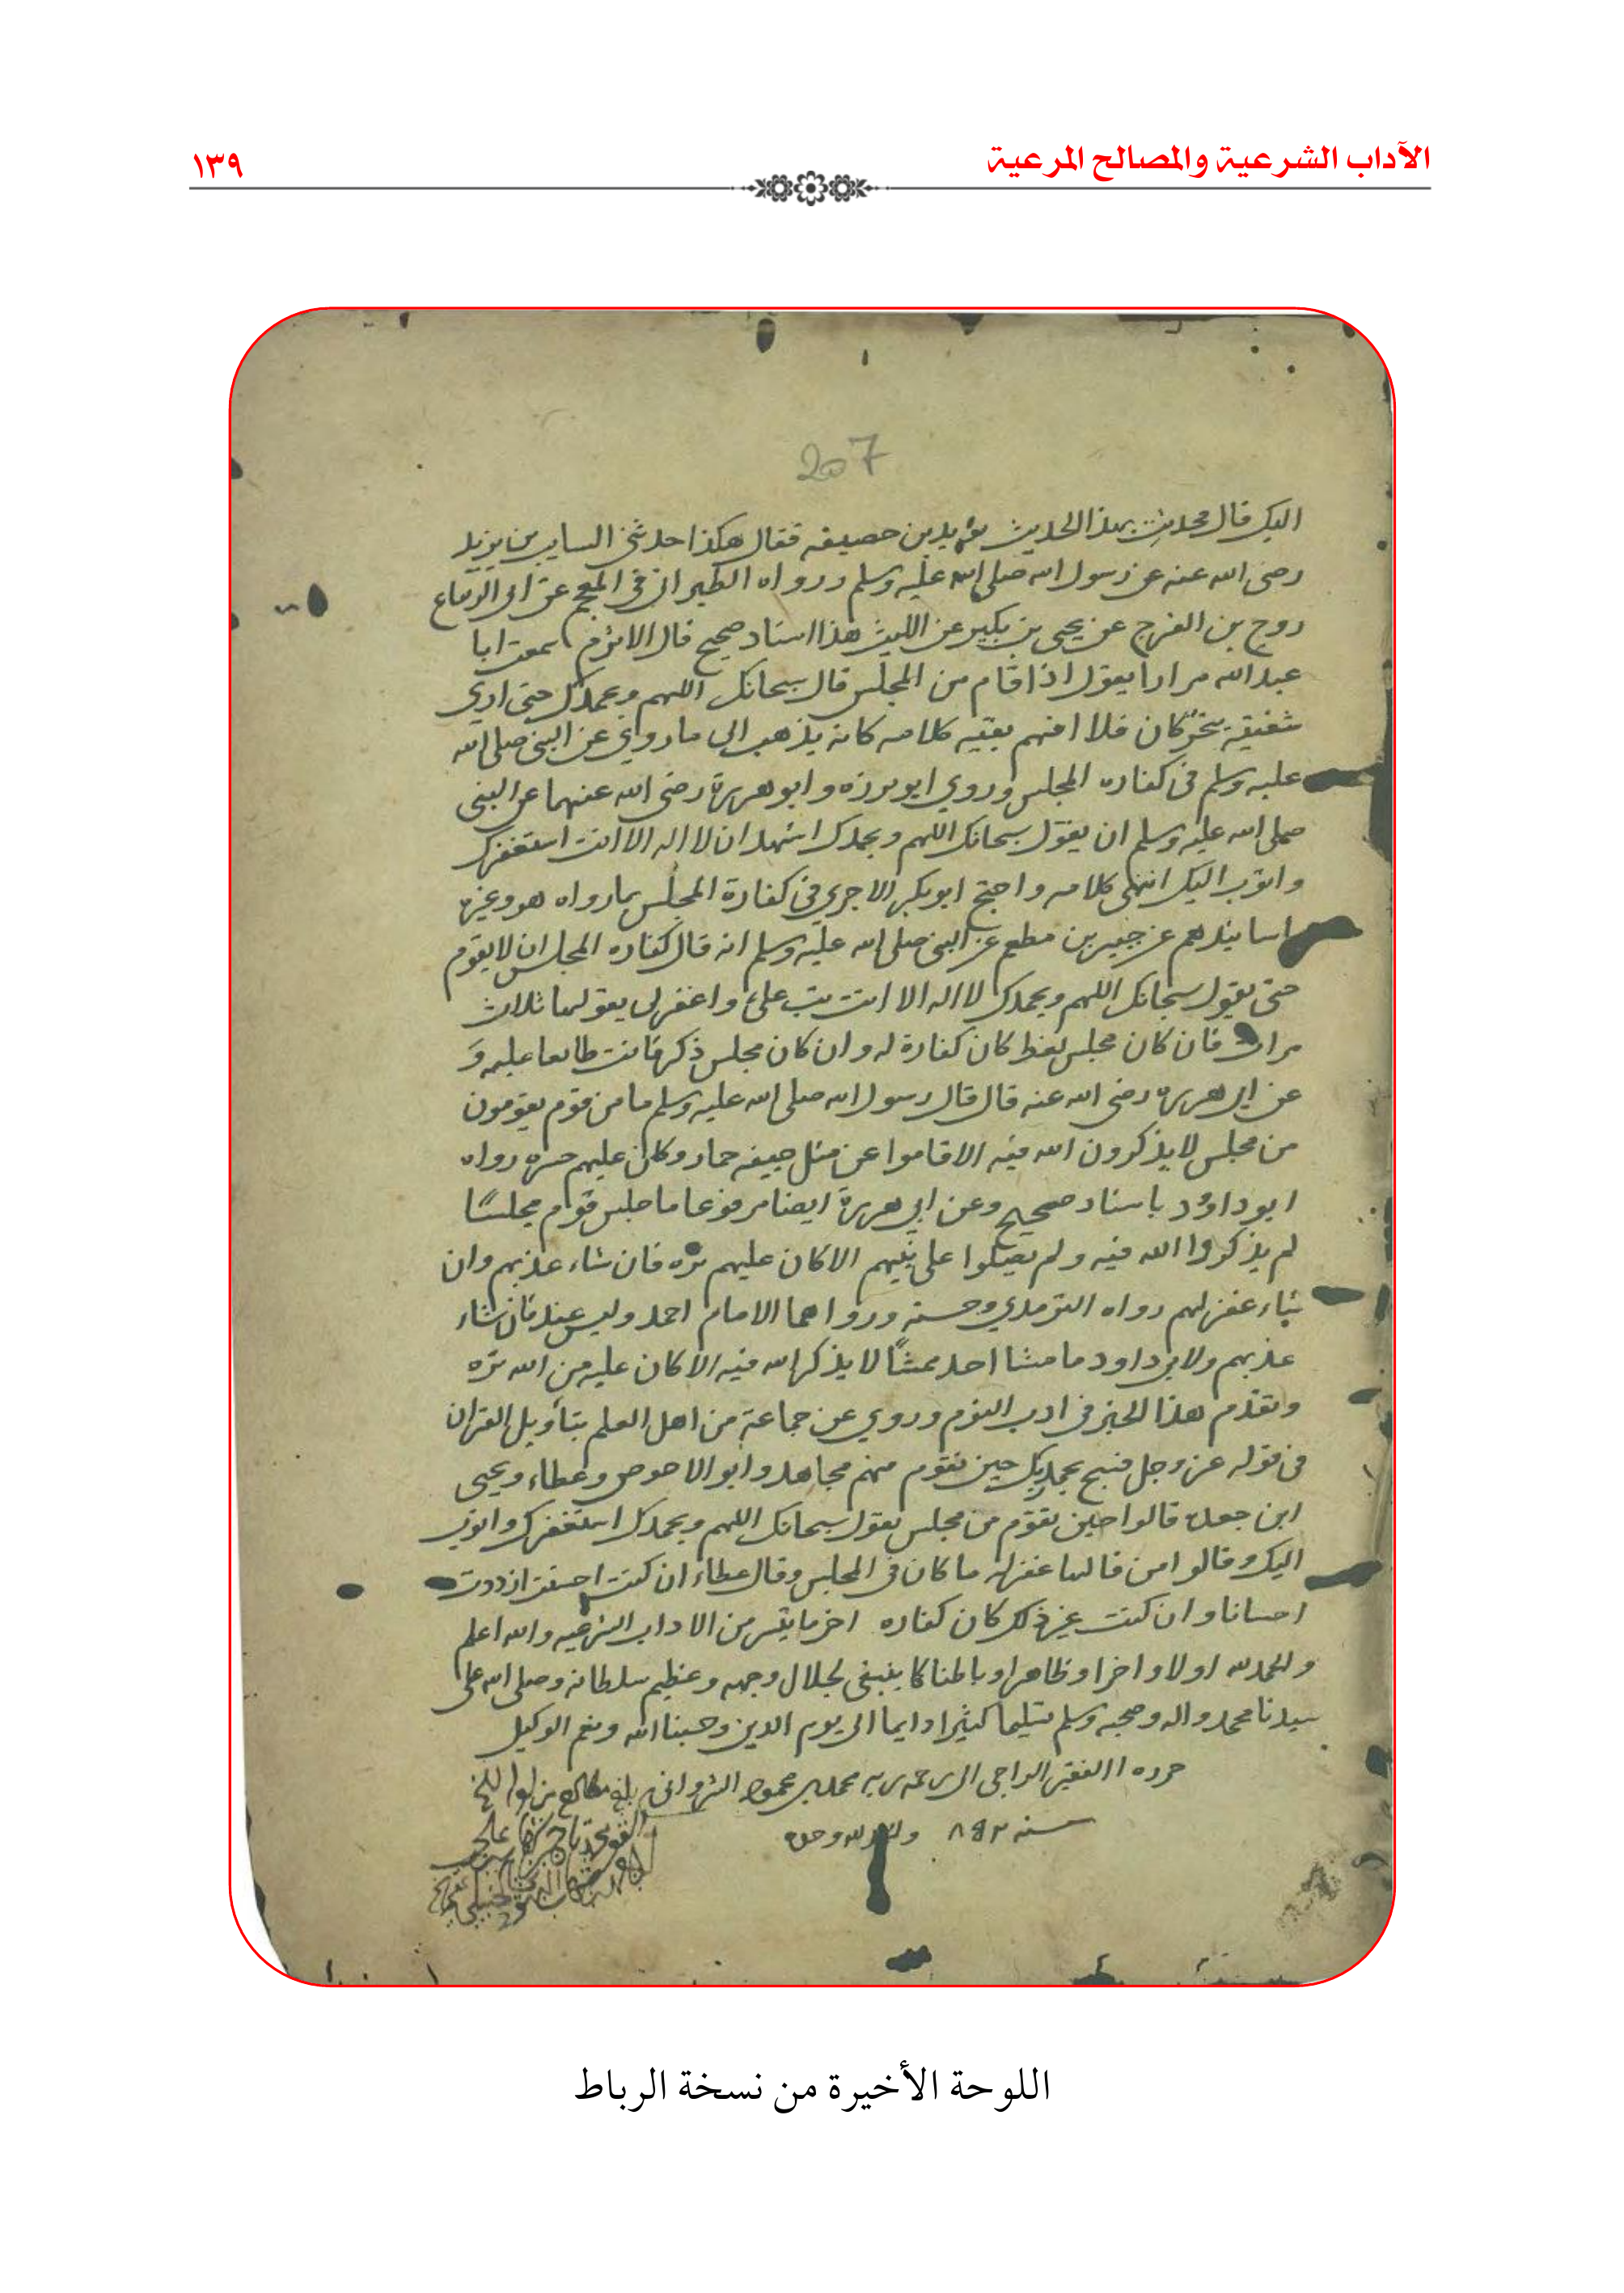 الآداب الشرعية والمصالح المرعية
١٣٩
207
اليك قال فحدثت بهذا الحديث يزيد بن حصيفه فقال هكذا حدثني السايب بن يزيد
رضى الله عنه عن رسول الله صلى الله عليه وسلم ورواه الطبراني في المعجم عن ابى الزنباع
روح بن الفرج عن يحيى بن بكير عن الليث هذا اسناد صحيح قال الاثرم سمعت ابا
عبد الله مرارا يقول اذا قام من المجلس قال سبحانك اللهم وبحمدك حتى ارى
شفتيه يتحركان فلا افهم بقيه كلامه كانه يذهب الى ما روي عن النبى صلى الله
عليه وسلم في كفاره المجلس وروي ابو برزه وابو هريرة رضى الله عنهما عن النبى
صلى الله عليه وسلم ان يقول سبحانك اللهم وبحمدك اشهد ان لا اله الا انت استغفرك
واتوب اليك انتهى كلامه واحتج ابو بكر الاجري في كفارة المجلس بما رواه هو وغيره
باسانيدهم عن جبير بن مطعم عن النبى صلى الله عليه وسلم انه قال كفاره المجلس ان لا يقوم
حتى يقول سبحانك اللهم وبحمدك لا اله الا انت تب علي واغفر لى يقولها ثلاث
مرات فان كان مجلس لغط كان كفارة له وان كان مجلس ذكر كانت طابعا عليه و
عن ابى هريره رضى الله عنه قال قال رسول الله صلى الله عليه وسلم ما من قوم يقومون
من مجلس لا يذكرون الله فيه الا قاموا عن مثل جيفه حمار وكان عليهم حسره رواه
ابو داود باسناد صحيح وعن ابي هريرة ايضا مرفوعا ما جلس قوم مجلسًا
لم يذكروا الله فيه ولم يصلوا على نبيهم الا كان عليهم تره فان شاء عذبهم وان
شاء غفر لهم رواه الترمذي وحسنه ورواهما الامام احمد وليس عنده فان شاء
عذبهم ولابى داود ما مشا احد ممشًا لا يذكر الله فيه الا كان عليه من الله تره
وتقدم هذا الخبر في ادب النوم وروي عن جماعة من اهل العلم بتأويل القران
في قوله عز وجل فسبح بحمد ربك حين تقوم منهم مجاهد وابو الاحوص وعطاء ويحيى
ابن جعده قالوا حين تقوم من مجلس تقول سبحانك اللهم وبحمدك استغفرك واتوب
اليك وقالوا من قالها غفر له ما كان في المجلس وقال عطاء ان كنت احسنت ازددت
احسانا وان كنت غير ذلك كان كفاره اخر ما يسر من الاداب الشرعيه والله اعلم
والحمد لله اولا واخرا وظاهرا وباطنا كما ينبغى لجلال وجهه وعظيم سلطانه وصلى الله على
سيدنا محمد واله وصحبه وسلم تسليما كثيرا دايما الى يوم الدين وحسبنا الله ونعم الوكيل
حرره الفقير الراجى الى رحمه ربه محمد بن محمود الشروانى
سنه ٨٤٢ والحمد لله وحده
اللوحة الأخيرة من نسخة الرباط